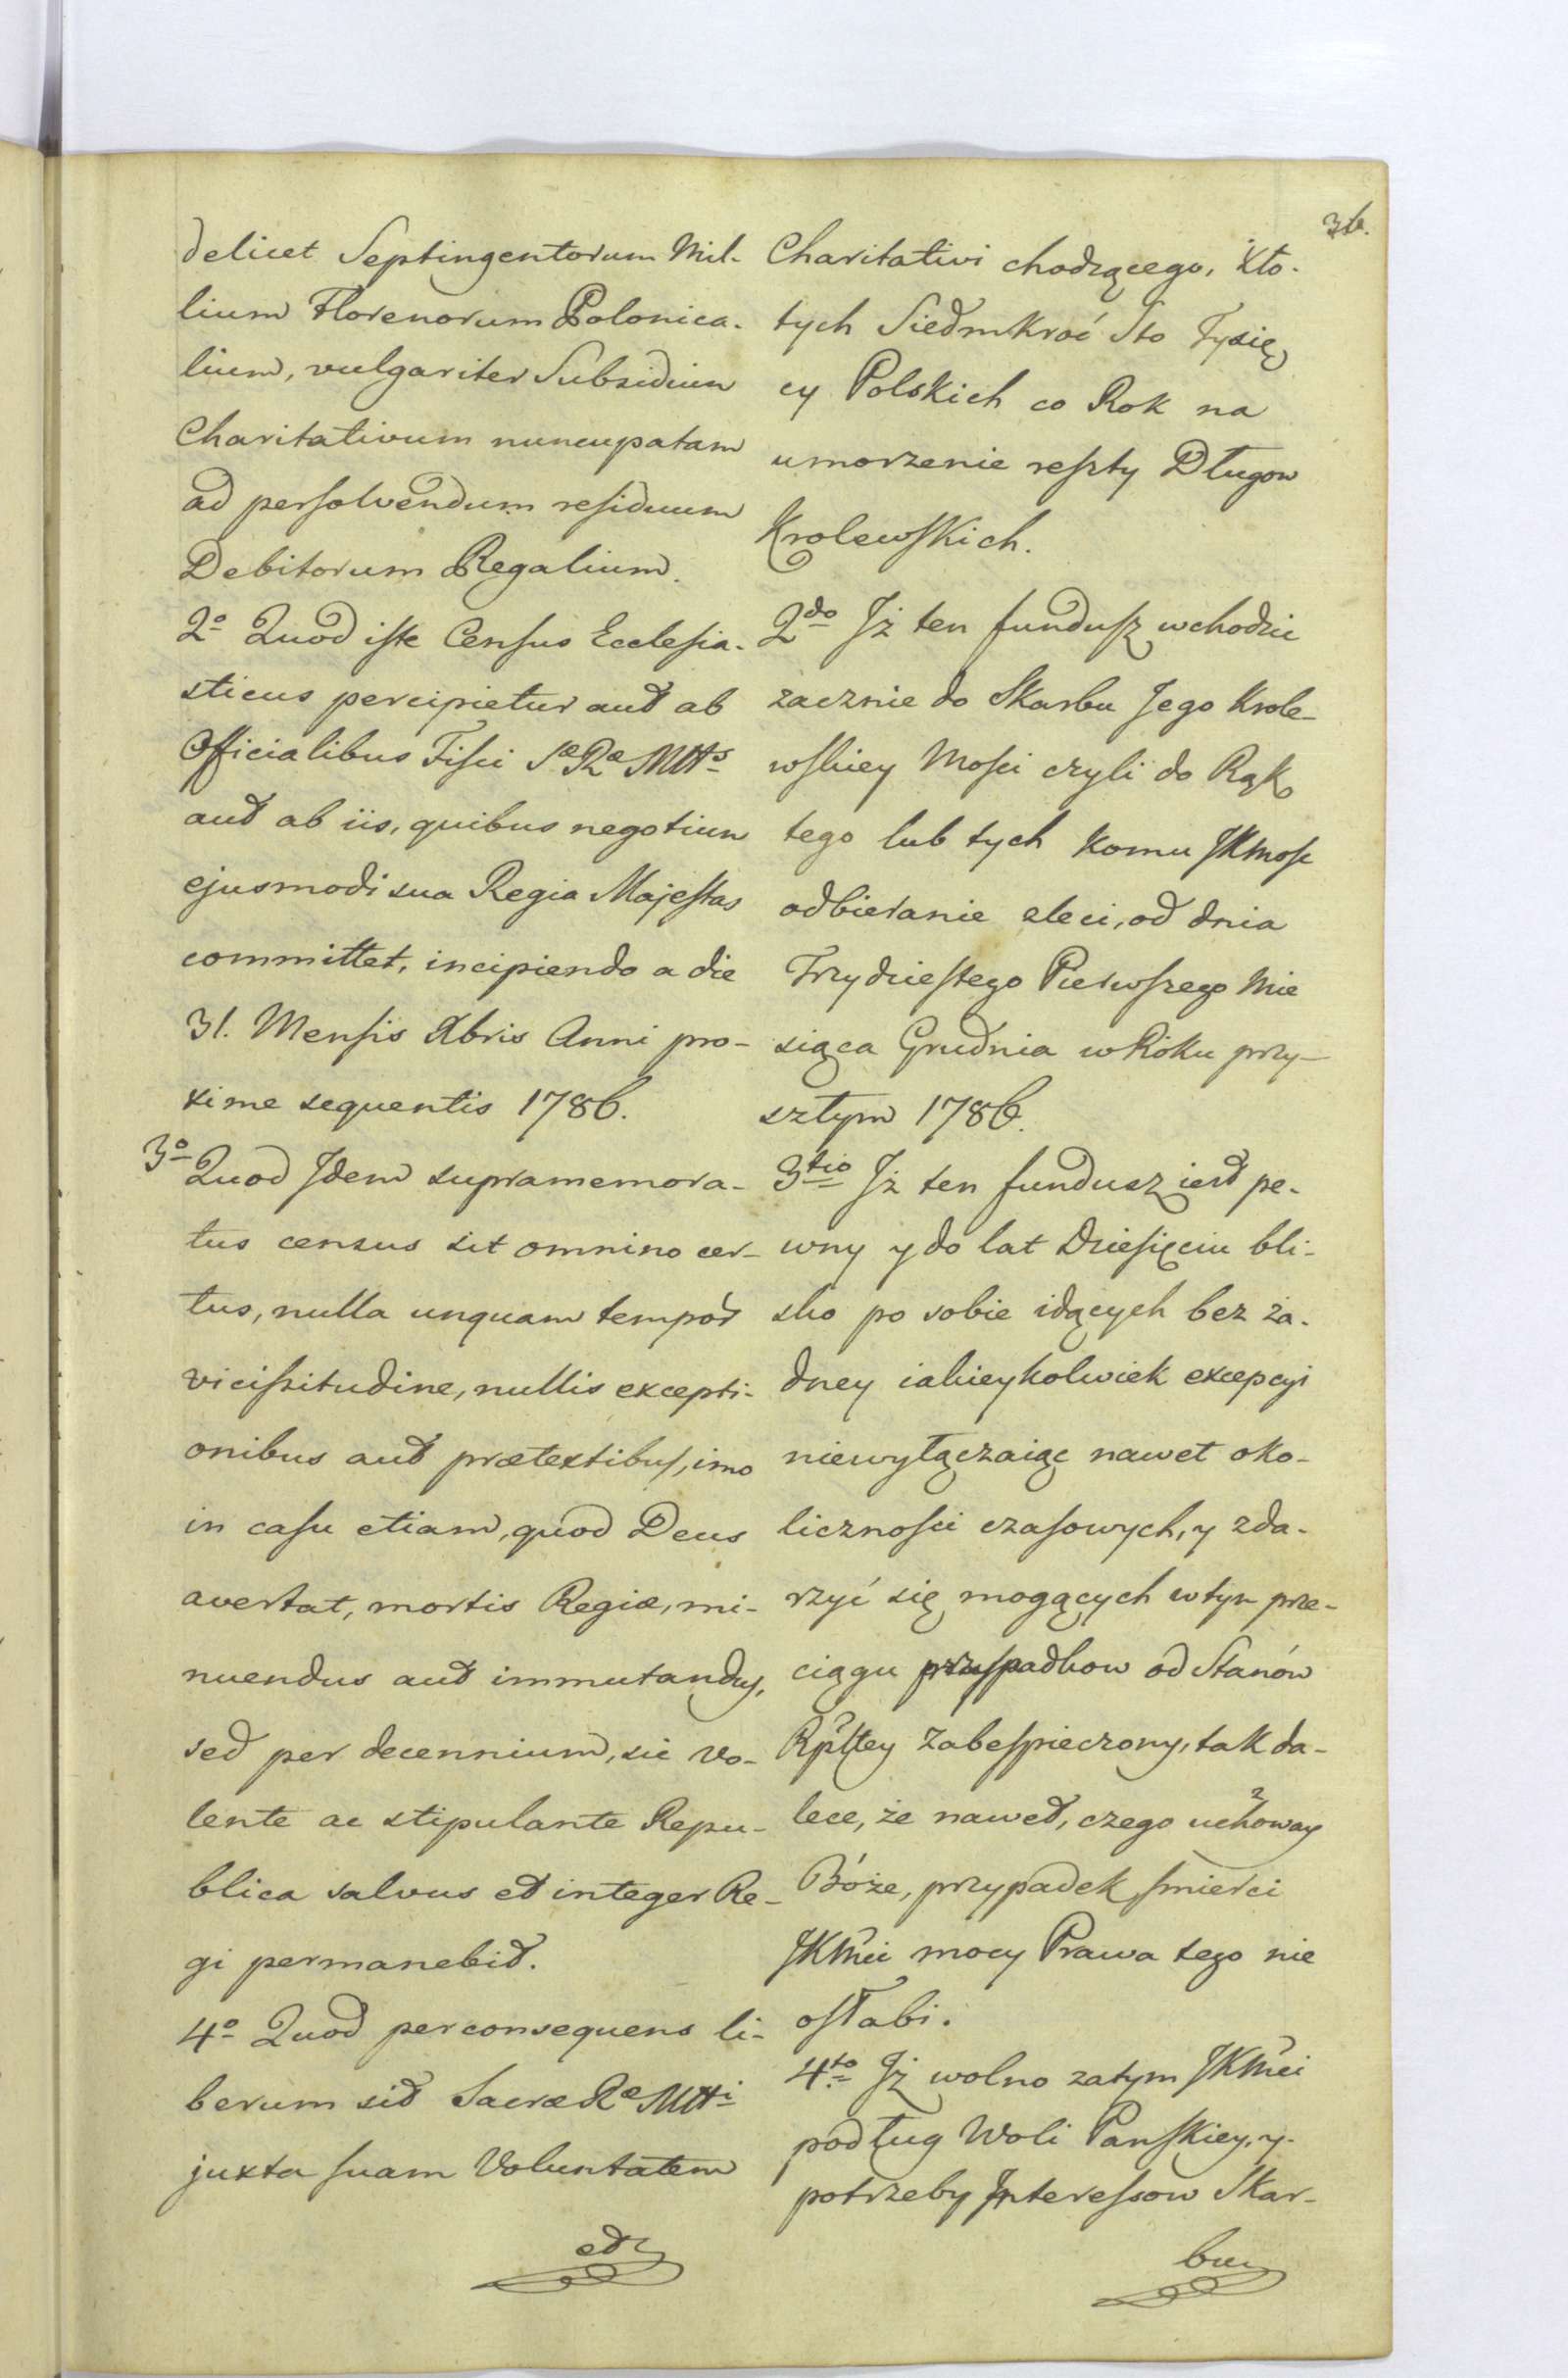 36.
delicet Septingentorum Mil-
lium Florenorum Polonica-
lium, vulgariter Subsidium
Charitativum nuncupatam
ad persolvendum residuum
Debitorum Regalium.
2º Quod iste Census Ecclesia-
sticus percipietur aut ab
Officialibus Fisci Sæ Ræ Mttis
aut ab iis, quibus negotium
ejusmodi sua Regia Majestas
committet, incipiendo a die
31. Mensis Xbris Anni pro-
xime sequentis 1786.
3º Quod Idem supramemora-
tus census sit omnino cer-
tus, nulla unquam tempor
vicissitudine, nullis excepti-
onibus aut prætextibus, imo
in casu etiam, quod Deus
avertat, mortis Regiæ, mi-
nuendus aut immutandus,
sed per decennium, sic vo-
lente ac stipulante Repu-
blica salvus et integer Re-
gi permanebit.
4º Quod per consequens li-
berum sit Sacræ Ræ Mtti
juxta suam Voluntatem
et
Charitativi chodzącego, Zło-
tych Siedmkroć Sto Tysię
cy Polskich co Rok na
umorzenie reszty Długow
Krolewskich.
2do Iż ten fundusz wchodzic
zacznie do Skarbu Jego Krole-
wskiey Mosci czyli do Rąk
tego lub tych komu JKMosc
odbieranie zleci, od dnia
Trzydziestego Pierwszego Mie
siąca Grudnia w Roku przy-
szłym 1786.
3tio Iż ten fundusz iest pe-
wny y do lat Dziesięciu bli-
sko po sobie idących bez ża-
dney iakieykolwiek excepcyi
niewyłączaiąc nawet oko-
licznosci czasowych, y zda-
rzyć się mogących w tym prze-
ciągu przypadkow od Stanów
Rpltey zabespieczony, tak da-
lece, że nawet, czego uchoway
Bóże, przypadek smierci
JKMci mocy Prawa tego nie
osłabi.
4to Iż wolno zatym JKMci
podług Woli Panskiey, y
potrzeby Interessow Skar-
bu